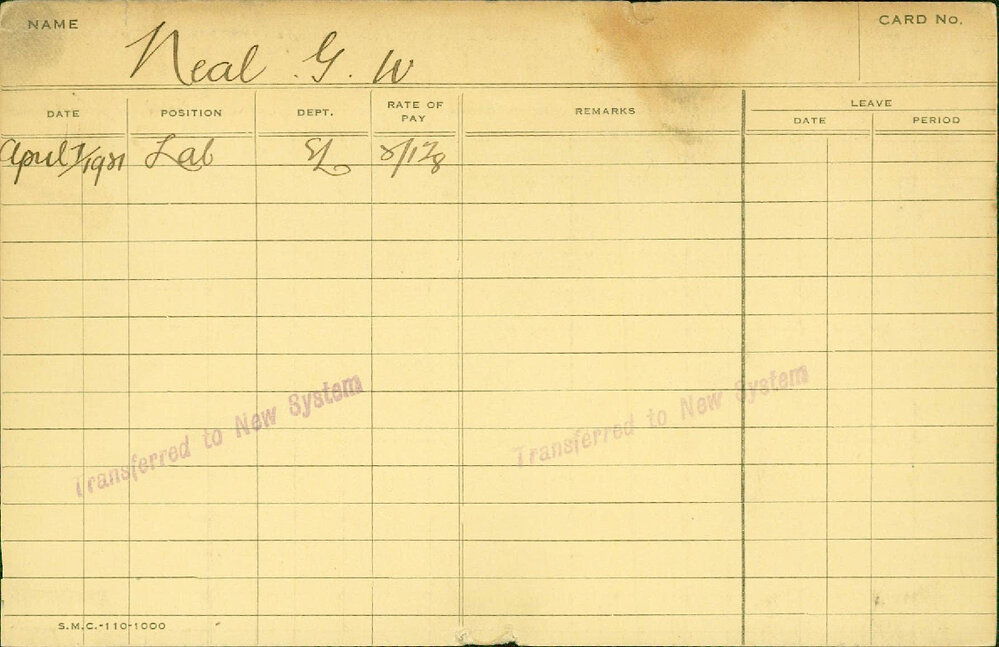 NAME
CARD No.
Neal G. W
DATE POSITION DEPT. RATE OF PAY REMARKS LEAVE
DATE PERIOD
April 7/1921 Lab EL
Transferred to New System Transferred to New System
S.M.C.-110-1000